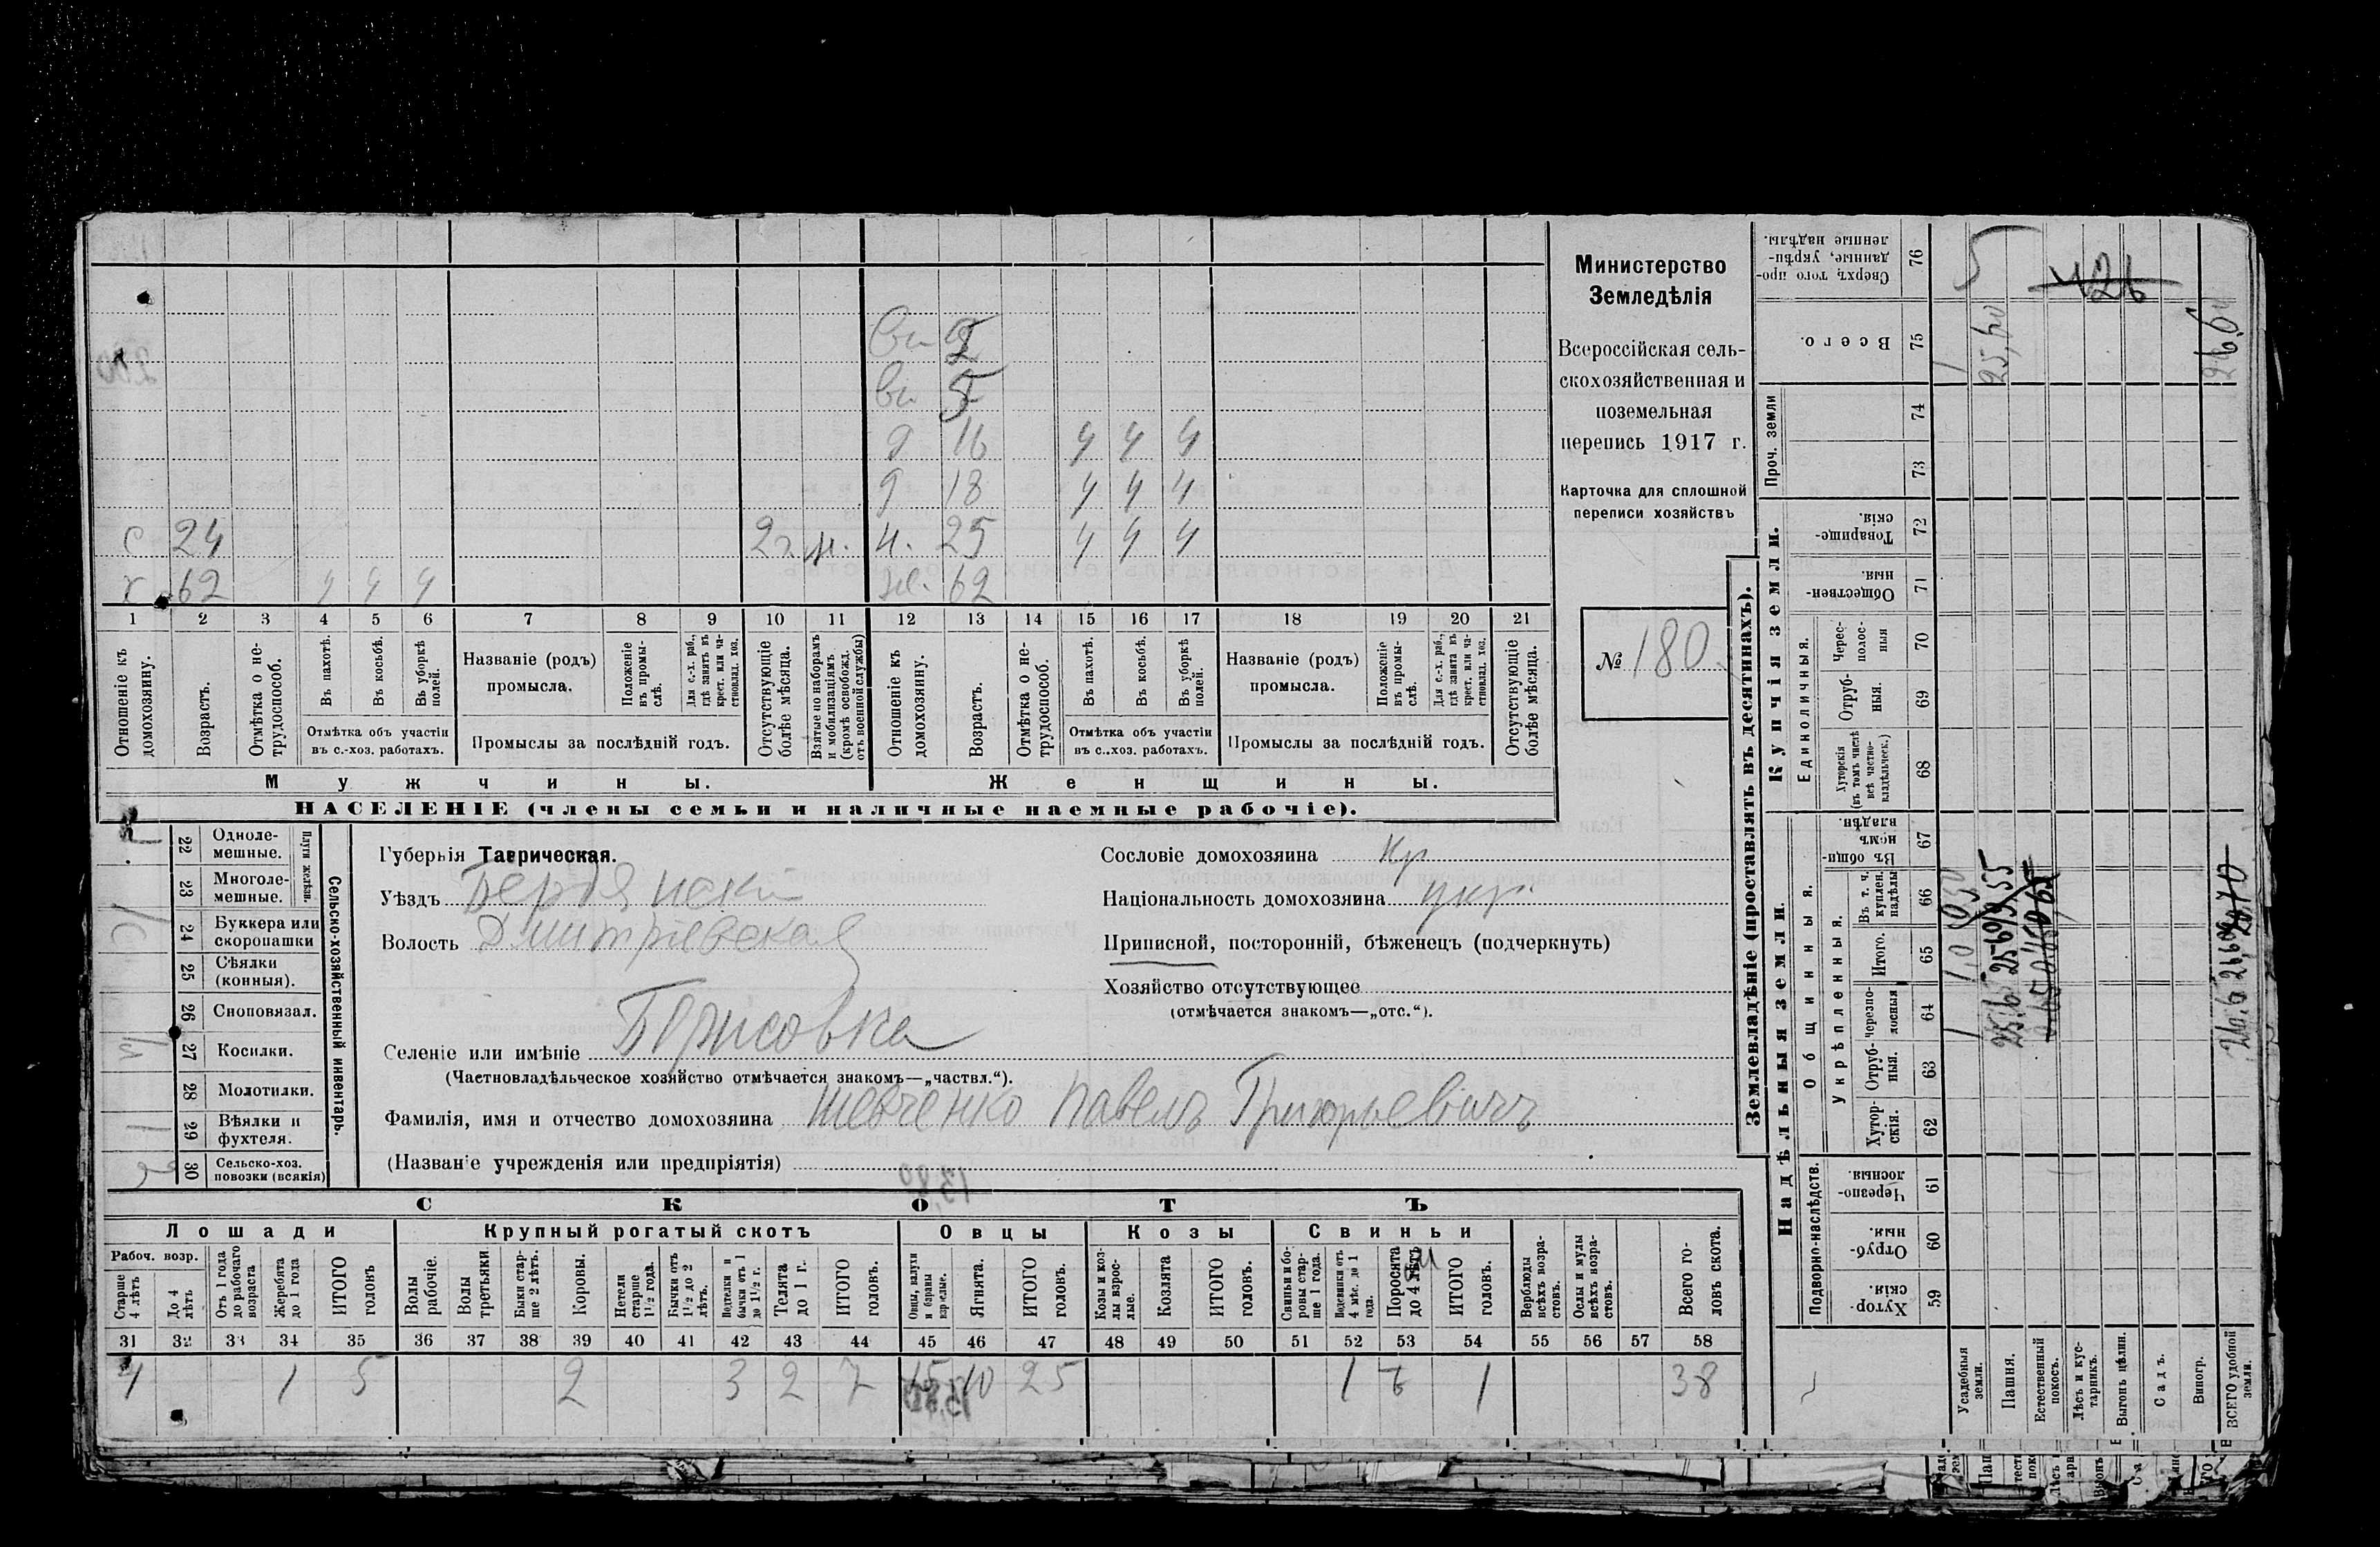 Министерство
Земледѣлія
Всероссійская сель-
скохозяйственная и
поземельная
перепись 1917 г.
Карточка для сплошной
переписи хозяйствъ
№ 180
вн
вн 5
д 16 ч ч ч
д 18 ч ч ч
с 24 2 г. м. н. 25 ч ч ч
х 62 ч ч ч ж. 62
1 2 3 4 5 6 7 8 9 10 11 12 13 14 15 16 17 18 19 20 21
Отношеніе къ домохозяину.
Возрастъ.
Отмѣтка о не-трудоспособ.
Въ пахотѣ.
Въ косьбѣ.
Въ уборкѣ полей.
Отмѣтка объ участіи въ с.-хоз. работахъ.
Названіе (родъ) промысла.
Положеніе въ промы-слѣ.
Для с.-х. раб., гдѣ занятъ въ крест. или ча-стновлад. хоз.
Промыслы за послѣдній годъ.
Отсутствующіе болѣе мѣсяца.
Взятые по наборамъ и мобилизаціямъ (кромѣ освобожд. отъ военной службы)
Отношеніе къ домохозяину.
Возрастъ.
Отмѣтка о не-трудоспособ.
Въ пахотѣ.
Въ косьбѣ.
Въ уборкѣ полей.
Отмѣтка объ участіи въ с.-хоз. работахъ.
Названіе (родъ) промысла.
Положеніе въ промы-слѣ.
Для с.-х. раб., гдѣ занята въ крест. или ча-стновлад. хоз.
Промыслы за послѣдній годъ.
Отсутствующіе болѣе мѣсяца.
Мужчины. Женщины.
НАСЕЛЕНІЕ (члены семьи и наличные наемные рабочіе).
22 Одноле-мешные.
23 Многоле-мешные.
Плуги желѣзн.
24 Буккера или скоропашки
25 Сѣялки (конныя).
26 Сноповязал.
27 Косилки.
28 Молотилки.
29 Вѣялки и фухтеля.
30 Сельско-хоз. повозки (всякія)
Сельско-хозяйственный инвентарь.
Губернія Таврическая.
Уѣздъ Бердянскій
Волость Дмитріевская
Сословіе домохозяина Кр
Національность домохозяина укр
Приписной, посторонній, бѣженецъ (подчеркнуть)
Хозяйство отсутствующее
(отмѣчается знакомъ—„отс.“).
Селеніе или имѣніе Борисовка
(Частновладѣльческое хозяйство отмѣчается знакомъ—„частвл.“).
Фамилія, имя и отчество домохозяина Шевченко Павелъ Григорьевичъ
(Названіе учрежденія или предпріятія)
СКОТЪ
Лошади Крупный рогатый скотъ Овцы Козы Свиньи
Рабоч. возр.
Старше 4 лѣтъ
До 4 лѣтъ
Отъ 1 года до рабочаго возраста
Жеребята до 1 года
ИТОГО головъ
Волы рабочіе.
Волы третьяки
Быки стар-ше 2 лѣтъ.
Коровы.
Нетели старше 1½ года.
Бычки отъ 1½ до 2 лѣтъ.
бычки отъ 1 до 1½ г.
Телята до 1 г.
ИТОГО головъ.
Овцы, валухи и бараны взрослые.
Ягнята.
ИТОГО головъ.
Козы и коз-лы взрос-лые.
Козлята
ИТОГО головъ.
Свиньи и бо-ровы стар-ше 1 года.
Подсвинки отъ 4 мѣс. до 1 года.
Поросята до 4 лѣтъ м
ИТОГО головъ.
Верблюды всѣхъ возра-стовъ.
Ослы и мулы всѣхъ возра-стовъ.
Всего го-ловъ скота.
31 32 33 34 35 36 37 38 39 40 41 42 43 44 45 46 47 48 49 50 51 52 53 54 55 56 57 58
4 1 5 2 3 2 7 15 10 25 1 1 38
Землевладѣніе (проставлять въ десятинахъ).
Надѣльныя земли. Купчія земли.
Подворно-наслѣдств. Общинныя. Единоличныя. Проч. земли
Укрѣпленныя.
Хутор-скія. 59
Отруб-ныя. 60
Черезпо-лосныя 61
Хутор-скія. 62
Отруб-ныя. 63
Черезпо-лосныя 64
Итого. 65
Въ т. ч. куплен. надѣлы 66
Въ общи-номъ владѣн. 67
Хуторскія (въ томъ числѣ всѣ частно-владѣльческ.) 68
Отруб-ныя. 69
Черес-полос-ныя 70
Обществен-ныя. 71
Товарище-скія. 72
73
74
Всего. 75
Сверхъ того про-данные, укрѣп-ленные надѣлы. 76
Усадебныя земли.
Пашня.
Естественный покосъ.
Лѣсъ и кус-тарникъ.
Выгонъ цѣлин.
Садъ.
Виногр.
ВСЕГО удобной земли.
1 1,0 1
25,60 25,60
426
26,6